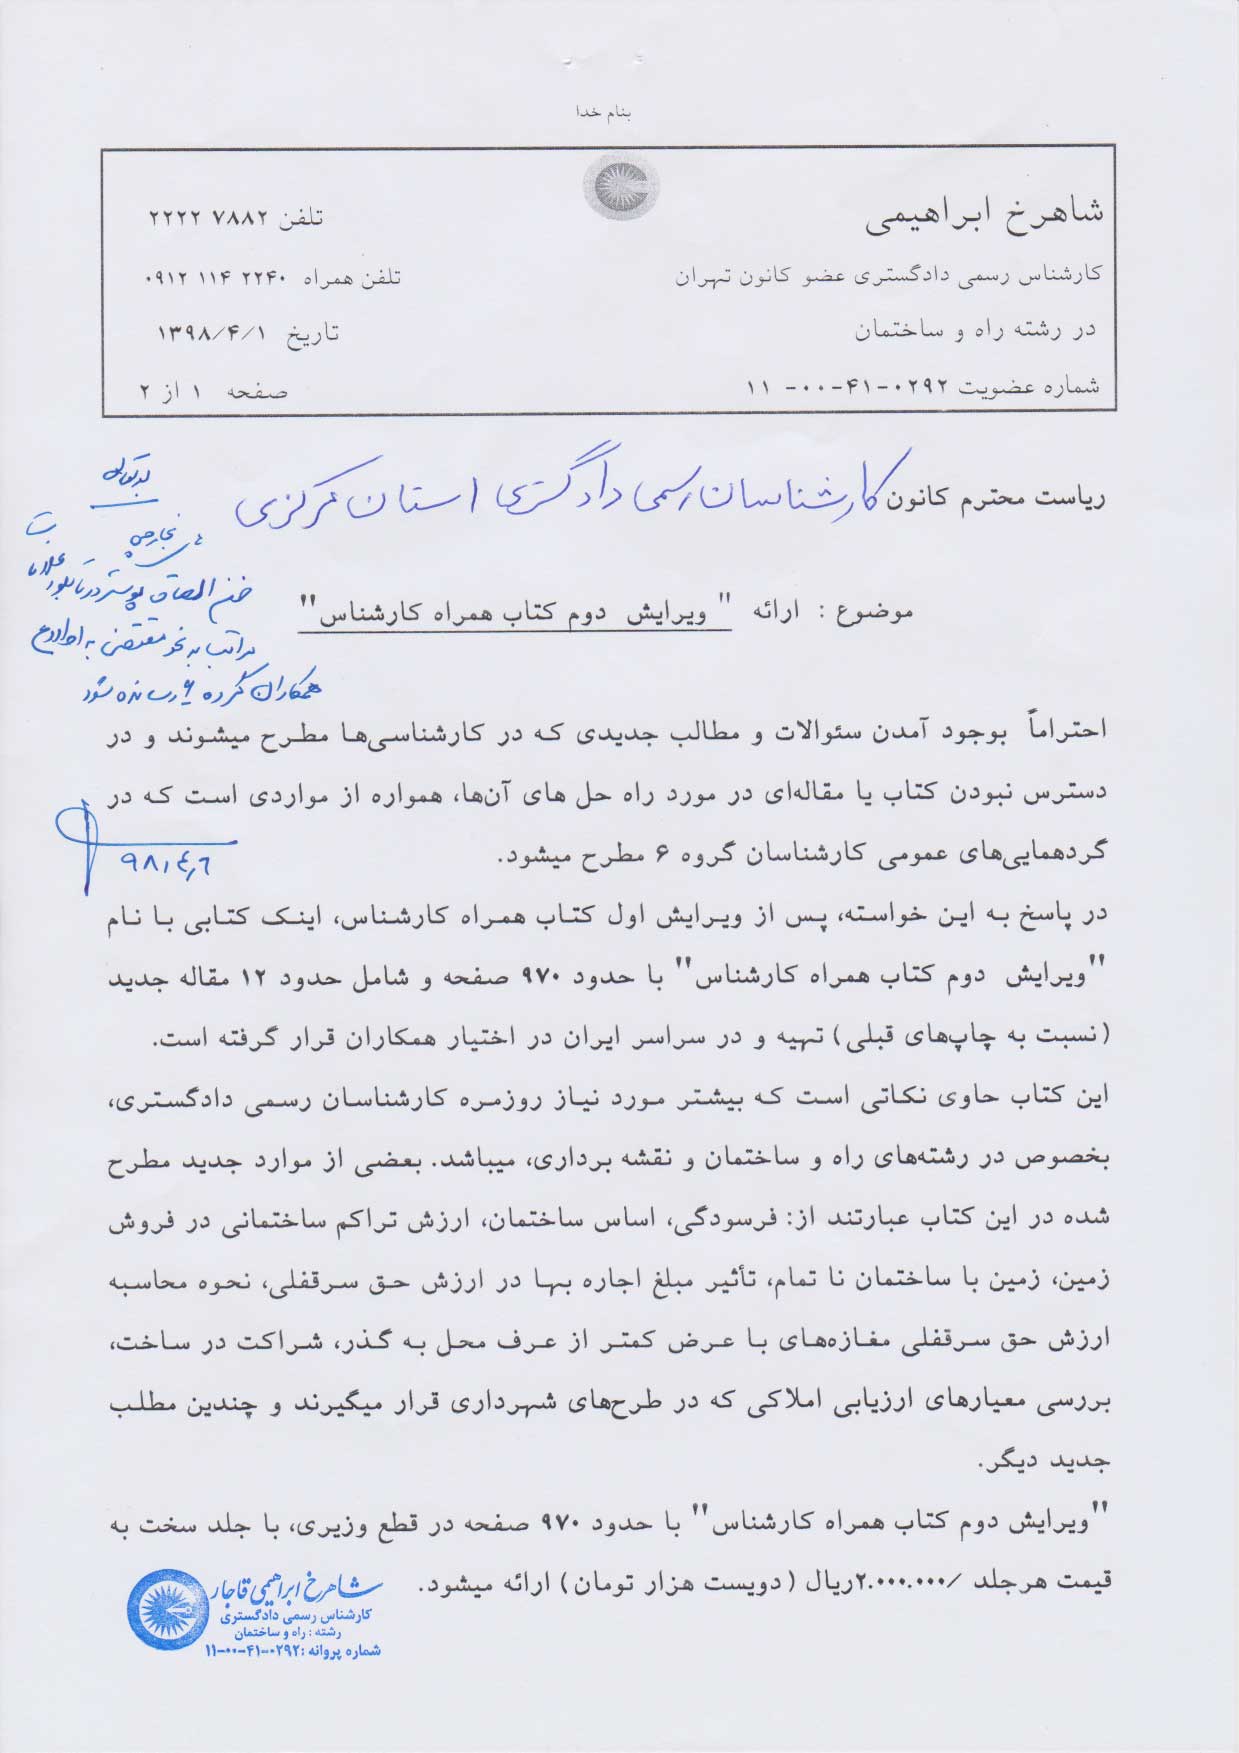 بنام خدا
شاهرخ ابراهیمی
کارشناس رسمی دادگستری عضو کانون تهران
در رشته راه و ساختمان
شماره عضویت ۰۲۹۲-۴۱-۰۰-۱۱
تلفن ۷۸۸۲ ۲۲۲۲
تلفن همراه ۲۲۴۰ ۱۱۴ ۰۹۱۲
تاریخ ۱۳۹۸/۴/۱
صفحه ۱ از ۲
ریاست محترم کانون کارشناسان رسمی دادگستری استان مرکزی
موضوع : ارائه " ویرایش دوم کتاب همراه کارشناس"
ضمن الصاق پوستر در تابلو
مراتب به نحو مقتضی به اطلاع
همکاران گروه ۶ رسانده شود
۹۸،۴،۶
احتراماً بوجود آمدن سئوالات و مطالب جدیدی که در کارشناسی‌ها مطرح میشوند و در
دسترس نبودن کتاب یا مقاله‌ای در مورد راه حل های آن‌ها، همواره از مواردی است که در
گردهمایی‌های عمومی کارشناسان گروه ۶ مطرح میشود.
در پاسخ به این خواسته، پس از ویرایش اول کتاب همراه کارشناس، اینک کتابی با نام
"ویرایش دوم کتاب همراه کارشناس" با حدود ۹۷۰ صفحه و شامل حدود ۱۲ مقاله جدید
(نسبت به چاپ‌های قبلی) تهیه و در سراسر ایران در اختیار همکاران قرار گرفته است.
این کتاب حاوی نکاتی است که بیشتر مورد نیاز روزمره کارشناسان رسمی دادگستری،
بخصوص در رشته‌های راه و ساختمان و نقشه برداری، میباشد. بعضی از موارد جدید مطرح
شده در این کتاب عبارتند از: فرسودگی، اساس ساختمان، ارزش تراکم ساختمانی در فروش
زمین، زمین با ساختمان نا تمام، تأثیر مبلغ اجاره بها در ارزش حق سرقفلی، نحوه محاسبه
ارزش حق سرقفلی مغازه‌های با عرض کمتر از عرف محل به گذر، شراکت در ساخت،
بررسی معیارهای ارزیابی املاکی که در طرح‌های شهرداری قرار میگیرند و چندین مطلب
جدید دیگر.
"ویرایش دوم کتاب همراه کارشناس" با حدود ۹۷۰ صفحه در قطع وزیری، با جلد سخت به
قیمت هرجلد /۲.۰۰۰.۰۰۰ریال (دویست هزار تومان) ارائه میشود.
شاهرخ ابراهیمی قاجار
کارشناس رسمی دادگستری
رشته : راه و ساختمان
شماره پروانه :۰۲۹۲-۴۱-۰۰-۱۱